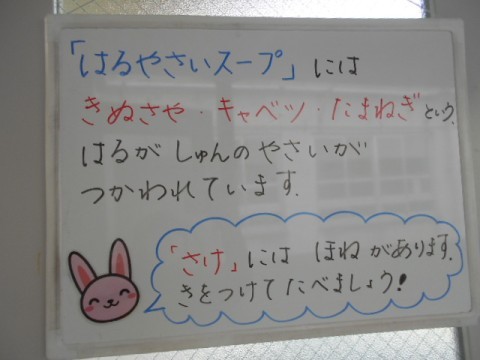 「はるやさいスープ」には
きぬさや・キャベツ・たまねぎという、
はるが しゅんのやさいが
つかわれています。
「さけ」には ほねがあります。
きをつけてたべましょう!